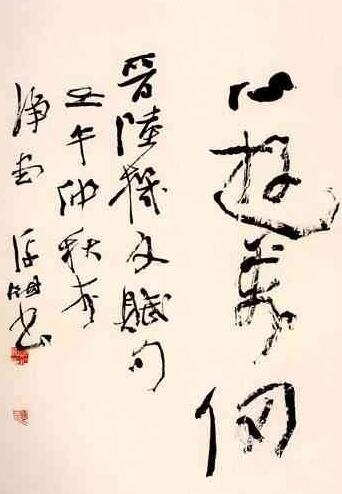 心遊萬仞
晉陸機文賦句
壬午仲秋
書